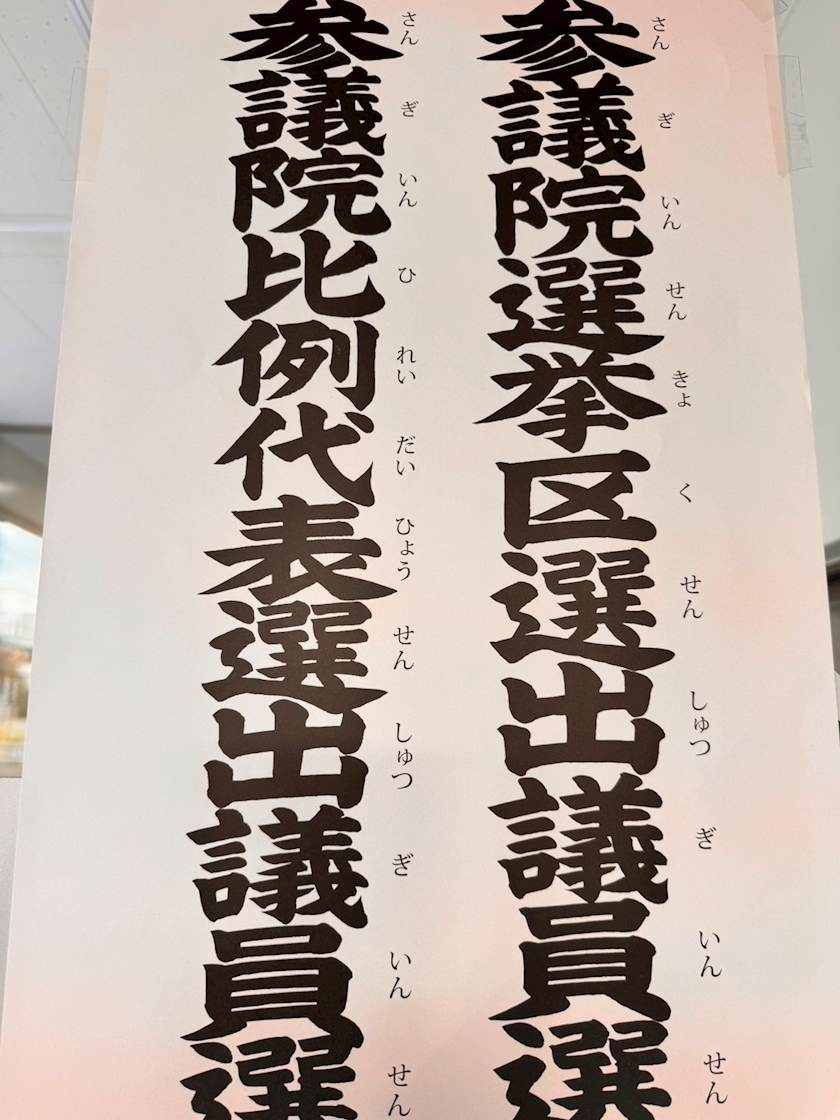 参議院選挙区選出議員選
さんぎいんせんきょくせんしゅつぎいんせん
参議院比例代表選出議員選
さんぎいんひれいだいひょうせんしゅつぎいんせん